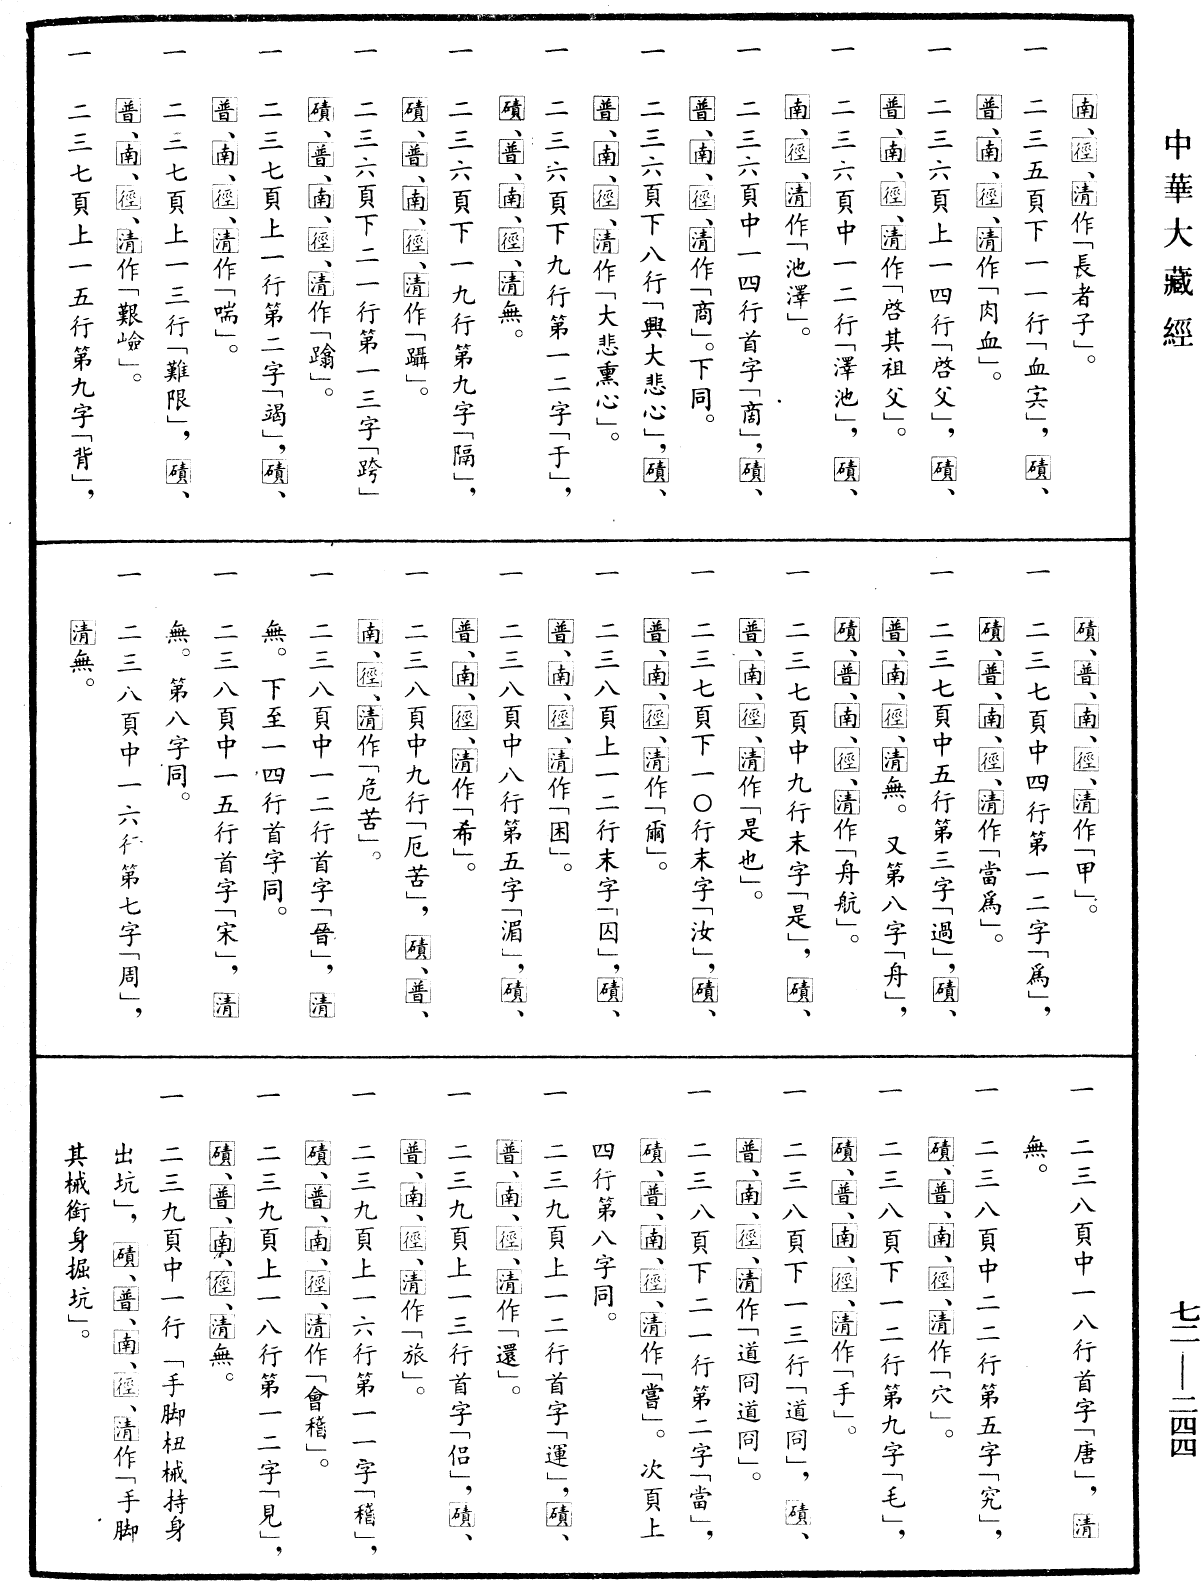 中華大藏經
七二—二四四
南、徑、清作「長者子」。
一 二三五頁下一一行「血宍」，磧、
普、南、徑、清作「肉血」。
一 二三六頁上一四行「啓父」，磧、
普、南、徑、清作「啓其祖父」。
一 二三六頁中一二行「澤池」，磧、
南、徑、清作「池澤」。
一 二三六頁中一四行首字「啇」，磧、
普、南、徑、清作「商」。下同。
一 二三六頁下八行「興大悲心」，磧、
普、南、徑、清作「大悲熏心」。
一 二三六頁下九行第一二字「于」，
磧、普、南、徑、清無。
一 二三六頁下一九行第九字「隔」，
磧、普、南、徑、清作「躡」。
一 二三六頁下二一行第一三字「跨」
磧、普、南、徑、清作「踰」。
一 二三七頁上一行第二字「竭」，磧、
普、南、徑、清作「喘」。
一 二三七頁上一三行「難限」，磧、
普、南、徑、清作「艱嶮」。
一 二三七頁上一五行第九字「背」，
磧、普、南、徑、清作「甲」。
一 二三七頁中四行第一二字「爲」，
磧、普、南、徑、清作「當爲」。
一 二三七頁中五行第三字「過」，磧、
普、南、徑、清無。又第八字「舟」，
磧、普、南、徑、清作「舟航」。
一 二三七頁中九行末字「是」，磧、
普、南、徑、清作「是也」。
一 二三七頁下一〇行末字「汝」，磧、
普、南、徑、清作「爾」。
一 二三八頁上一二行末字「囚」，磧、
普、南、徑、清作「困」。
一 二三八頁中八行第五字「湄」，磧、
普、南、徑、清作「希」。
一 二三八頁中九行「厄苦」，磧、普、
南、徑、清作「危苦」。
一 二三八頁中一二行首字「晉」，清
無。下至一四行首字同。
一 二三八頁中一五行首字「宋」，清
無。第八字同。
一 二三八頁中一六行第七字「周」，
清無。
一 二三八頁中一八行首字「唐」，清
無。
一 二三八頁中二二行第五字「究」，
磧、普、南、徑、清作「穴」。
一 二三八頁下一二行第九字「毛」，
磧、普、南、徑、清作「手」。
一 二三八頁下一三行「道冏」，磧、
普、南、徑、清作「道冏道冏」。
一 二三八頁下二一行第二字「當」，
磧、普、南、徑、清作「嘗」。次頁上
四行第八字同。
一 二三九頁上一二行首字「運」，磧、
普、南、徑、清作「還」。
一 二三九頁上一三行首字「侶」，磧、
普、南、徑、清作「旅」。
一 二三九頁上一六行第一一字「稽」，
磧、普、南、徑、清作「會稽」。
一 二三九頁上一八行第一二字「見」，
磧、普、南、徑、清無。
一 二三九頁中一行「手脚杻械持身
出坑」，磧、普、南、徑、清作「手脚
其械銜身掘坑」。